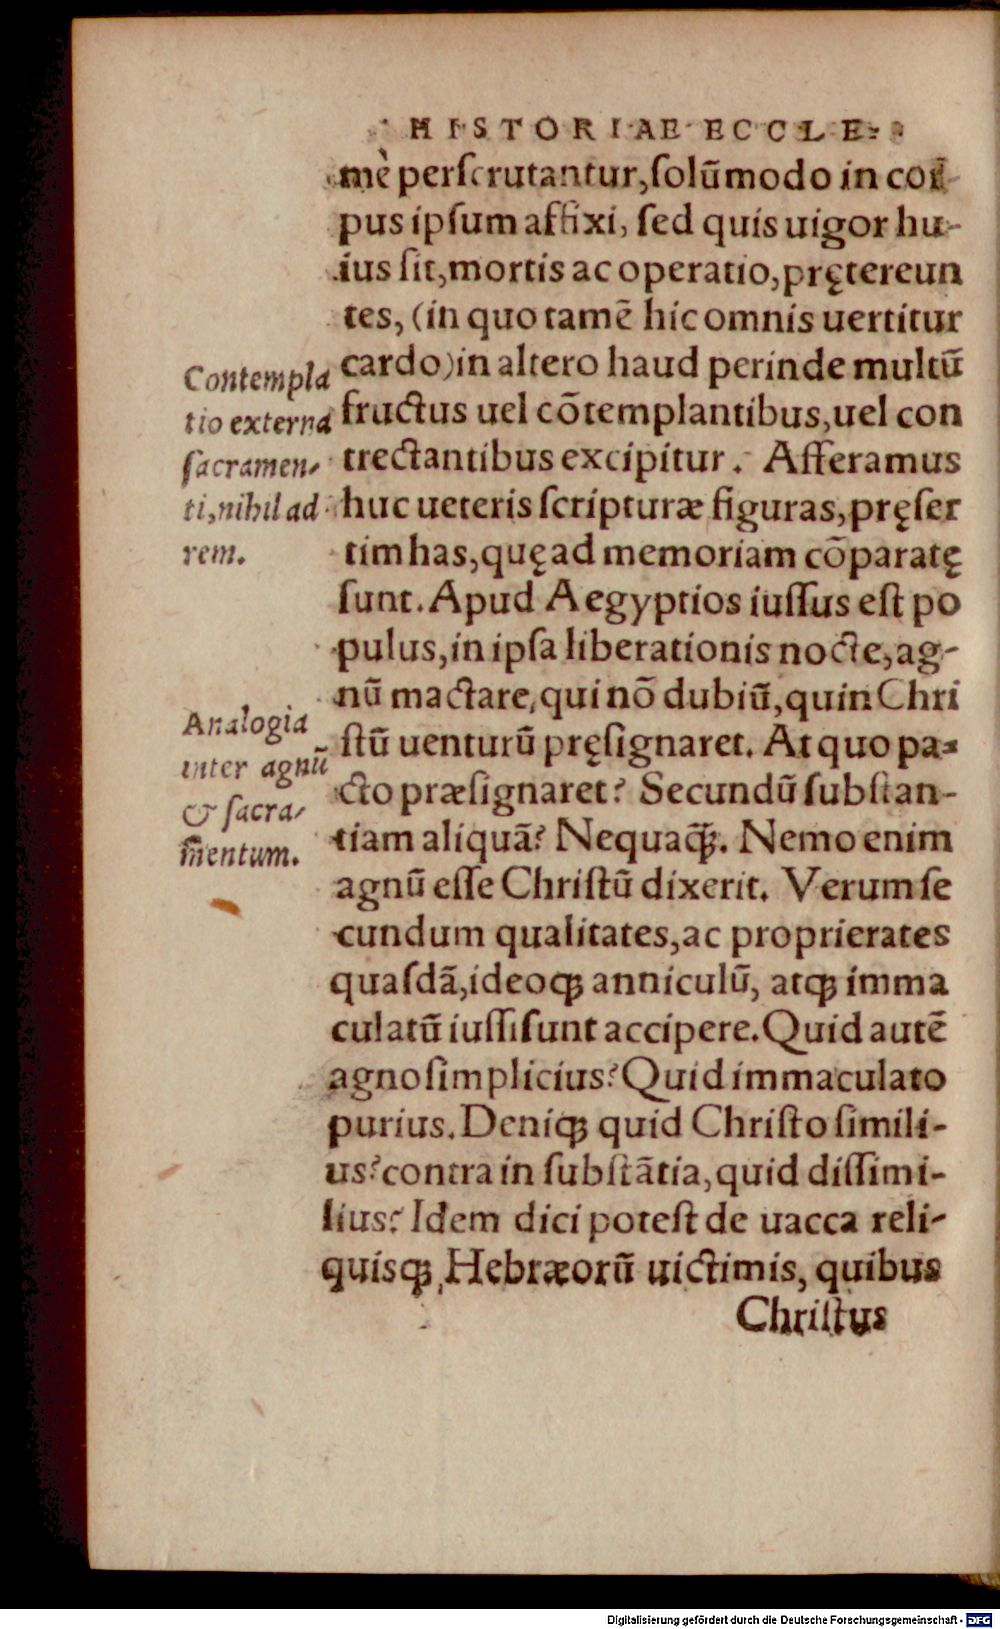 HISTORIAE ECCLE-
mè perscrutantur, solũmodo in cor-
pus ipsum affixi, sed quis uigor hu-
ius sit, mortis ac operatio, prętereun
tes, (in quo tamẽ hic omnis uertitur
cardo) in altero haud perinde multũ
fructus uel cõtemplantibus, uel con
trectantibus excipitur. Afferamus
huc ueteris scripturæ figuras, pręser
tim has, quę ad memoriam cõparatę
sunt. Apud Aegyptios iussus est po
pulus, in ipsa liberationis nocte, ag-
nũ mactare, qui nõ dubiũ, quin Chri
stũ uenturũ pręsignaret. At quo pa-
cto præsignaret? Secundũ substan-
tiam aliquã? Nequaꝗ̃. Nemo enim
agnũ esse Christũ dixerit. Verum se
cundum qualitates, ac proprietates
quasdã, ideoꝗ anniculũ, atꝗ imma
culatũ iussi sunt accipere. Quid autẽ
agno simplicius? Quid immaculato
purius. Deniꝗ quid Christo simili-
us? contra in substãtia, quid dissimi-
lius? Idem dici potest de uacca reli-
quisꝗ, Hebræorũ uictimis, quibus
Christus
Contempla
tio externa
sacramen-
ti, nihil ad
rem.
Analogia
inter agnũ
& sacra-
mentum.
Digitalisierung gefördert durch die Deutsche Forschungsgemeinschaft - DFG